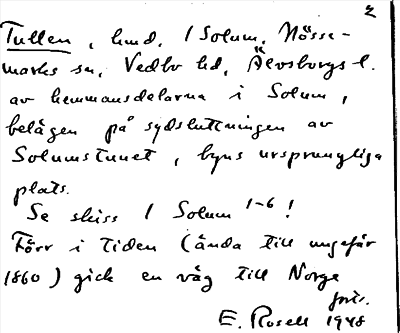 2
Tullen, hmd. / Solum, Nösse-
marks sn, Vedbo hd, Älvsborgs l.
av hemmansdelarna i Solum,
belägen på sydsluttningen av
Solumstunet, byns ursprungliga
plats.
Se skiss / Solum 1-6!
Förr i tiden (ända till ungefär
1860) gick en väg till Norge
förbi.
E. Rosell 1948